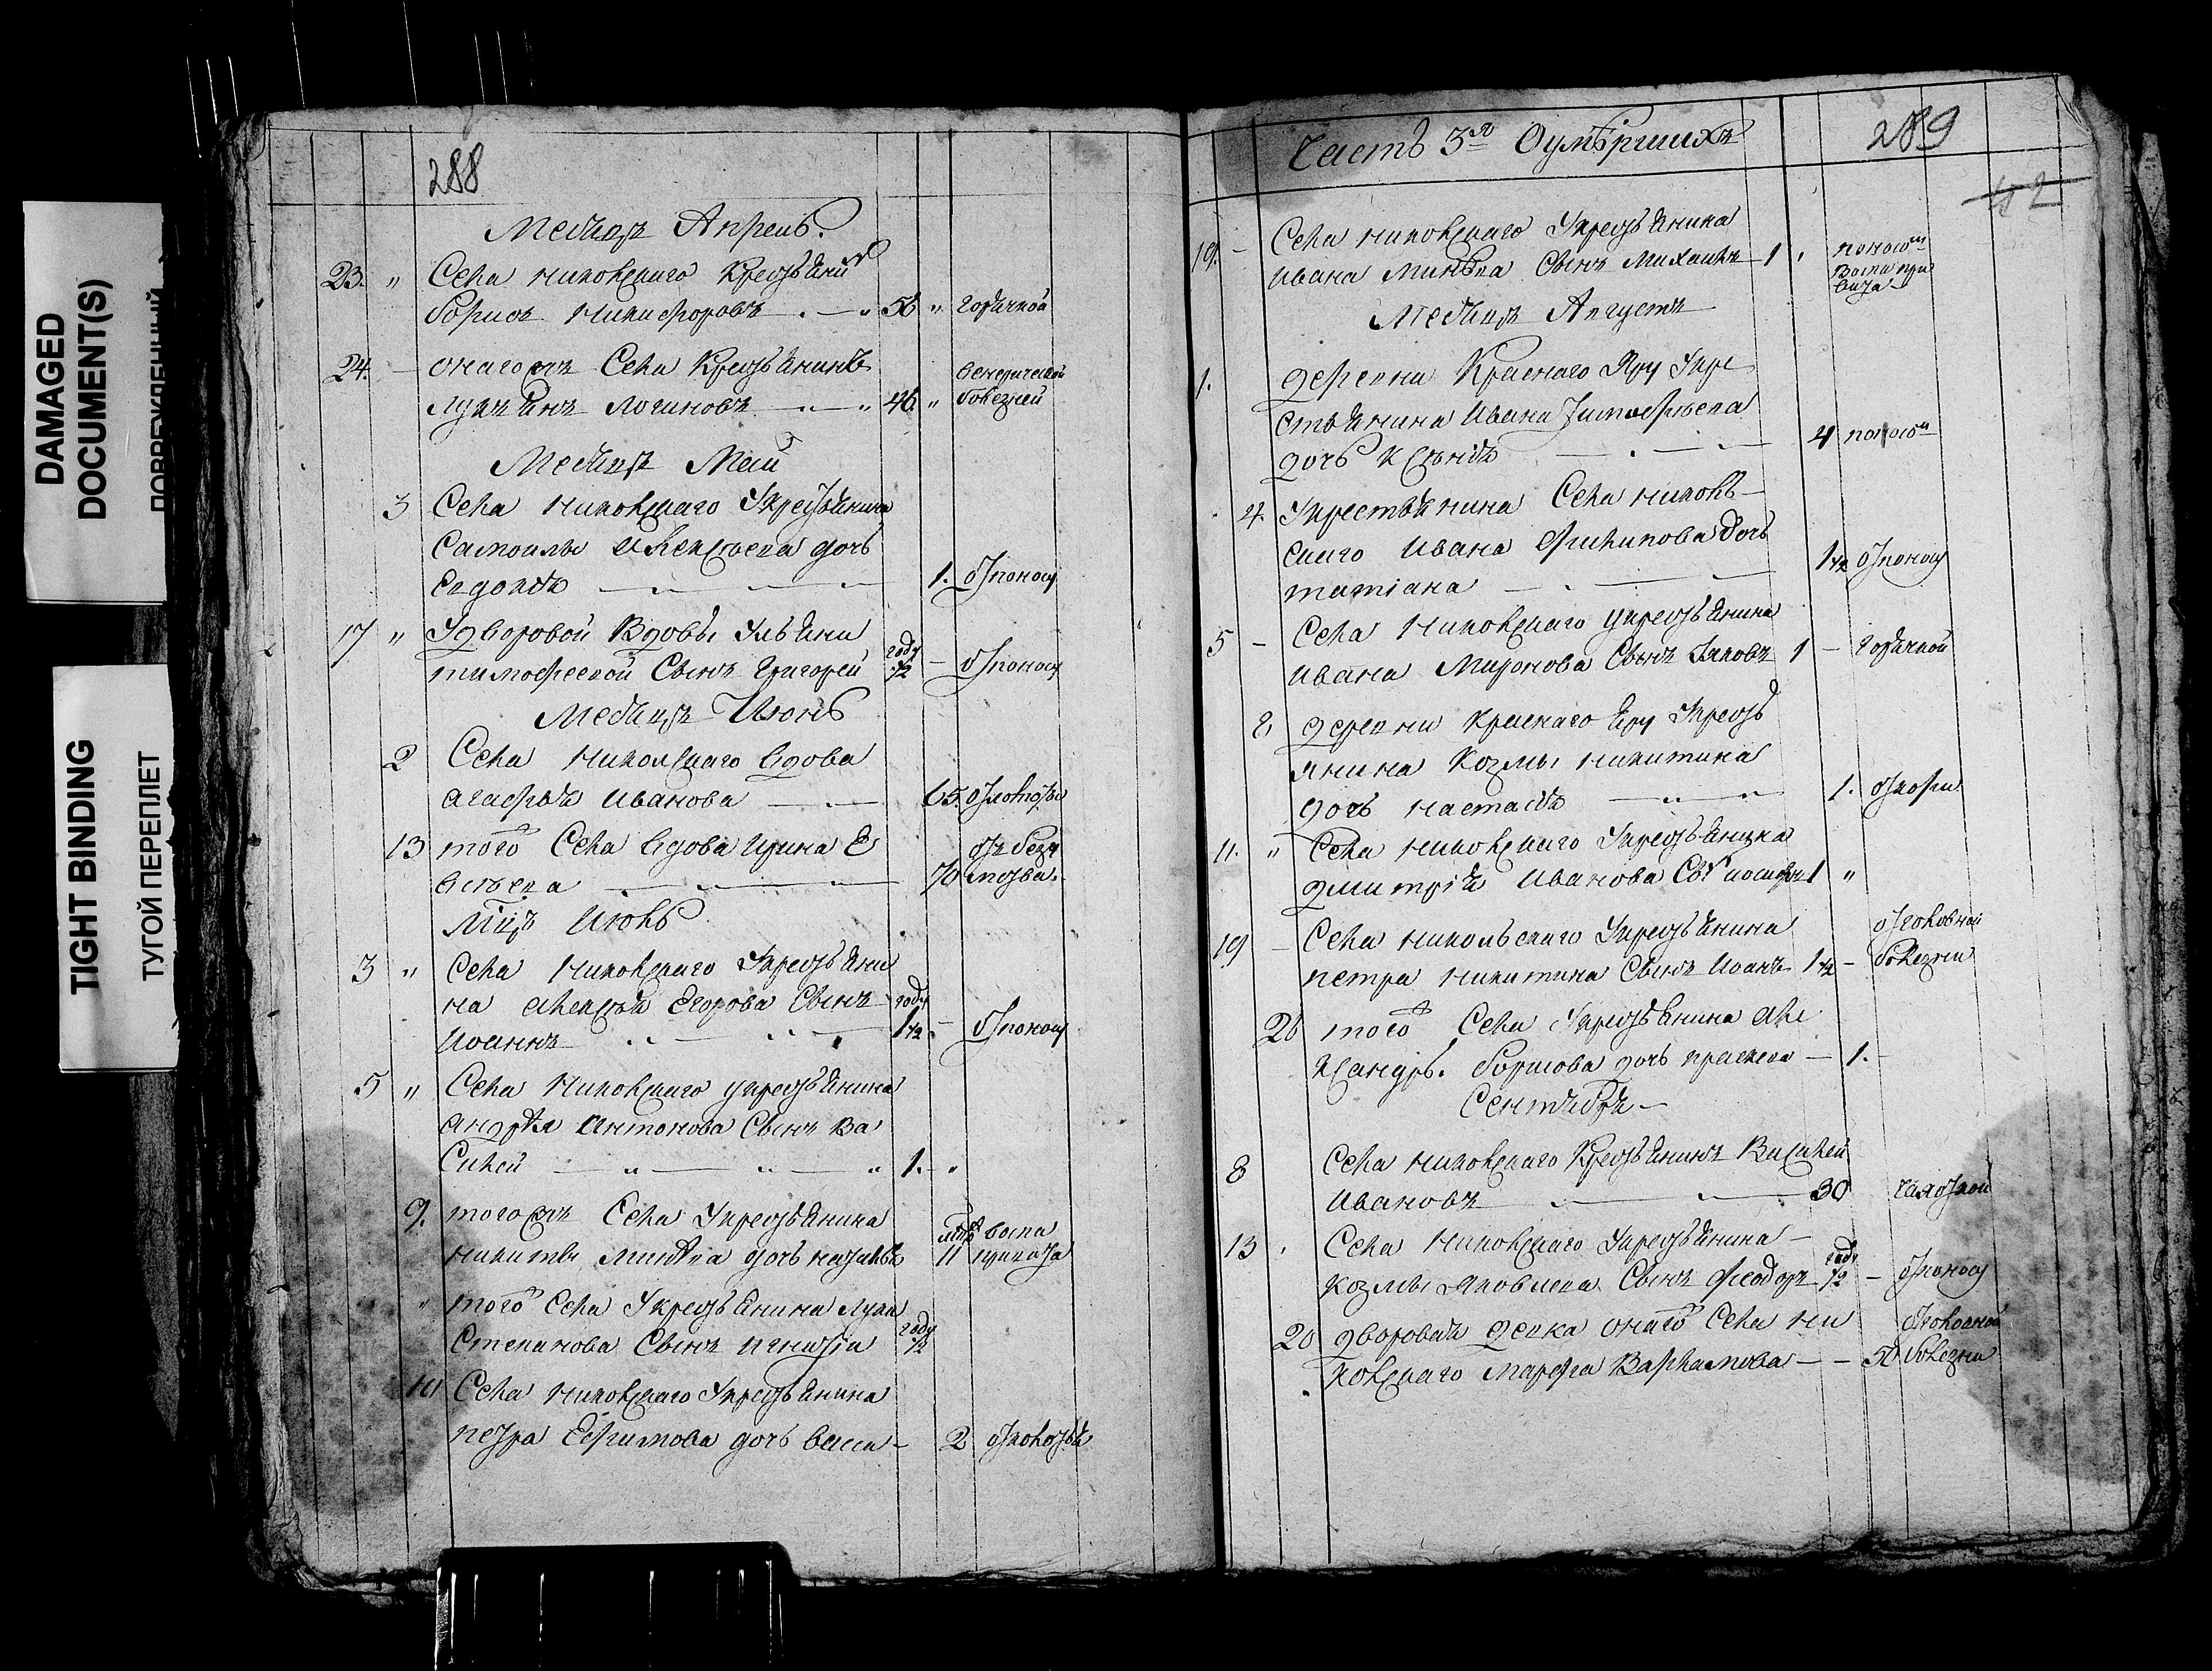 DAMAGED
DOCUMENT(S)
TIGHT BINDING
ТУГОЙ ПЕРЕПЛЕТ
288
Месяцъ Апрель.
23. " Села николскаго Крестьяни
Борисъ Никифоровъ 56 " горячкой
24. – онагожъ Села Крестьянинъ
Лукъянъ Логиновъ 46 " венерической болезней
Месяцъ Маӥ
3 Села николскаго Укрестьянина
Самоилы Алексъева дочь
Евдокія 1. отпоносу
17 " Удворовой Вдовы Ульяни
тимофеевой Сынъ Григорей году 1/2 – отпоносу
Месяцъ Июнь
2 Села николскаго вдова
агафья иванова 65.
13 того Села вдова Ирина Е
70
Мцъ Июль
3 " Села николскаго Укрестьяни
на алексъя Егорова Сынъ году
Иоаннъ 1 1/2 – отпоносу
5 " Села николскаго укрестьянина
андрѣя антонова Сынъ Ва
Силей 1. "
9. тогожъ Села Укрестьянина
никиты дочь 11 воспа
" того Села Укрестьянина луки
Степанова Сынъ игнатіи году 1/2
10 Села николскаго Укрестьянина
петра Ефимова дочь васи– 2
Часть 3я Оумѣршихъ
289
42
19. – Села николскаго Укрестьянина
ивана Сынъ Михаилъ 1
Месяцъ Августъ
1. деревни Краснаго Яру Укре
стьянина Ивана тимофѣева
дочь 4 поносом
4. Укрестьянина Села николь–
скаго Ивана Филипова дочь
татіана 1 1/2 отпоносу
5 – Села николскаго укрестьянина
ивана Миронова Сынъ Іяковъ 1 – горячкой
8 деревни краснаго яру Укресть
янина козмы никитина
дочь настасія 1. откори
11. " Села николскаго Укрестьянина
дмитрія иванова Сы иосифъ 1 "
19 – Села никольскаго Укрестьянина
петра никитина Сынъ Иоанъ 1 1/2 – отголовной болезни
26 того Села Укрестьянина але
ксандръ. борисова дочь 1. –
Сентябрь –
8 Села николскаго Крестьянинъ Василей
ивановъ 30 чахоткой
13 . Села николскаго Укрестьянина –
козмы яковлева Сынъ Феодоръ году 1/2 – отпоносу
20 дворовая девка онаго Села ни
колскаго марфа Варламова – – 50 отголовной болезни